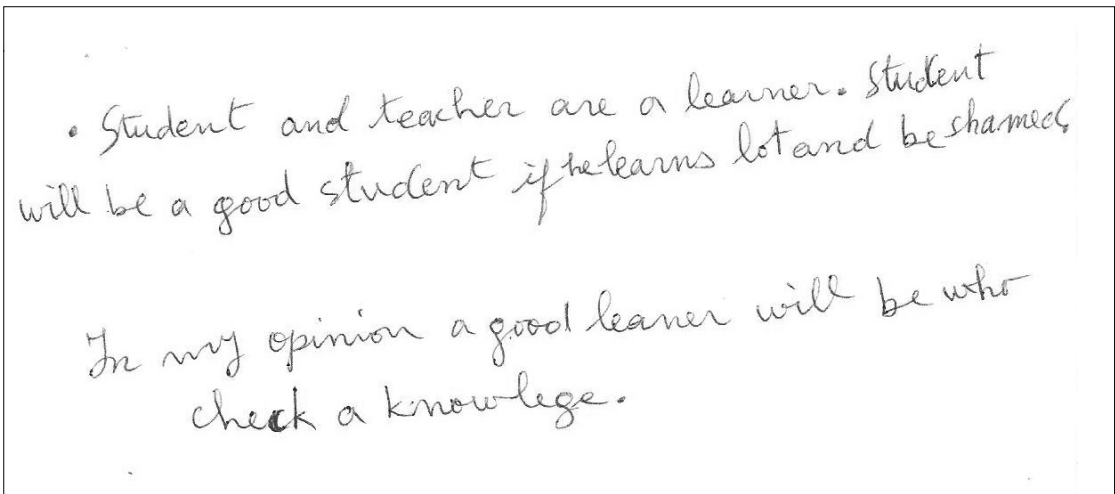 • Student and teacher are a learner. Student
will be a good student if he learns lot and be shamed
In my opinion a good leaner will be who
check a knowlege.